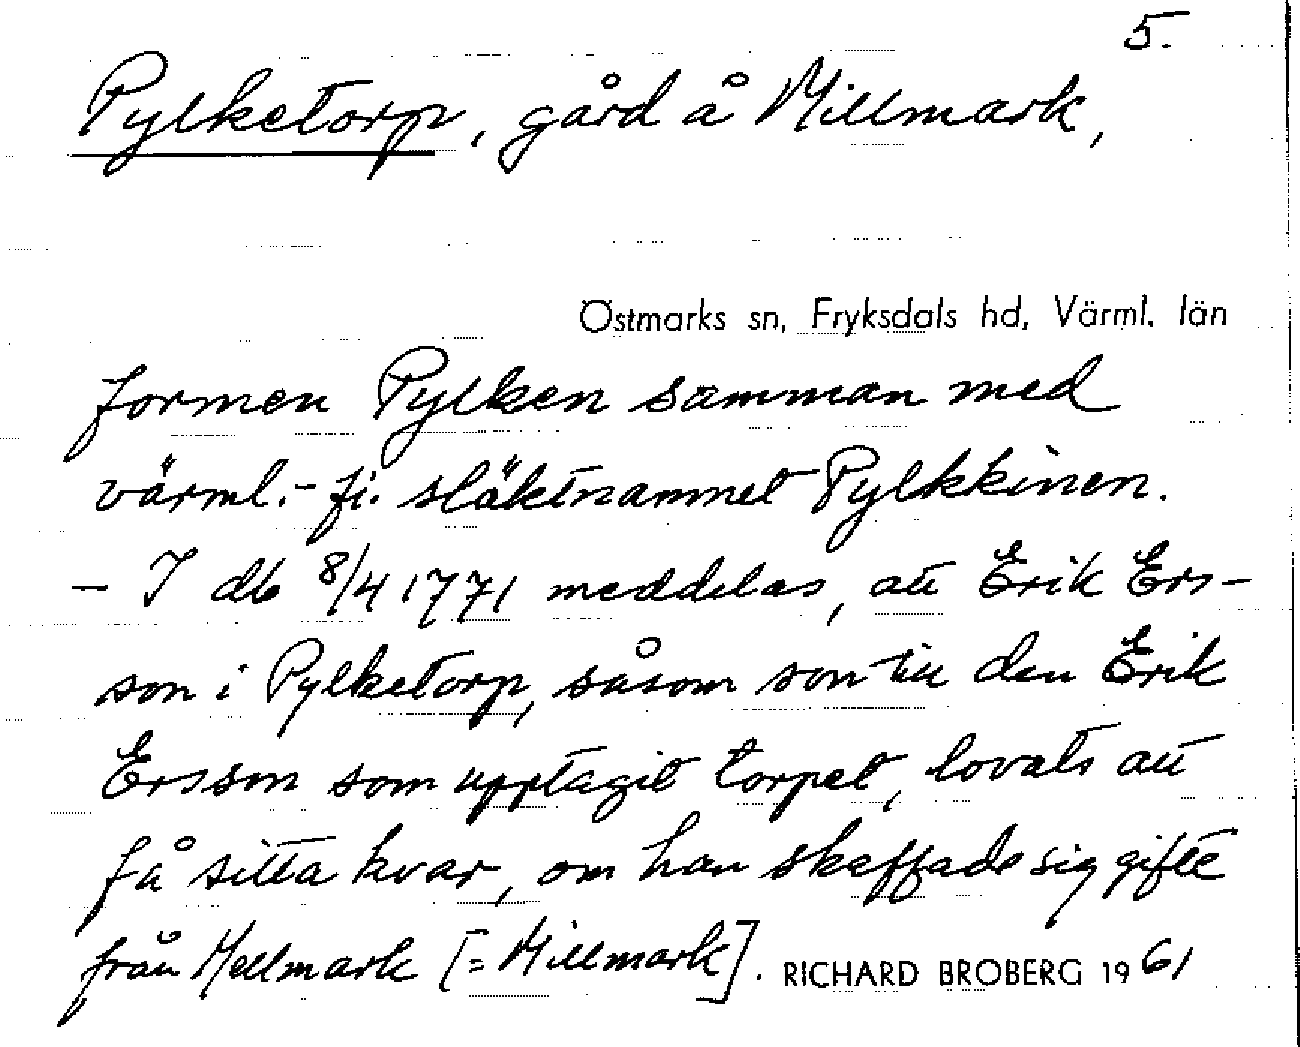 5.
Pylketorp, gård å Millmark,
Östmarks sn, Fryksdals hd, Värml. län
formen Pylken samman med
värml.-fi. släktnamnet Pylkkinen.
– I db 8/4 1771 meddelas, att Erik Ers-
son i Pylketorp, såsom son till den Erik
Ersson som upptagit torpet, lovats att
få sitta kvar, om han skaffade sig gifte
från Mellmark [= Millmark]. RICHARD BROBERG 1961